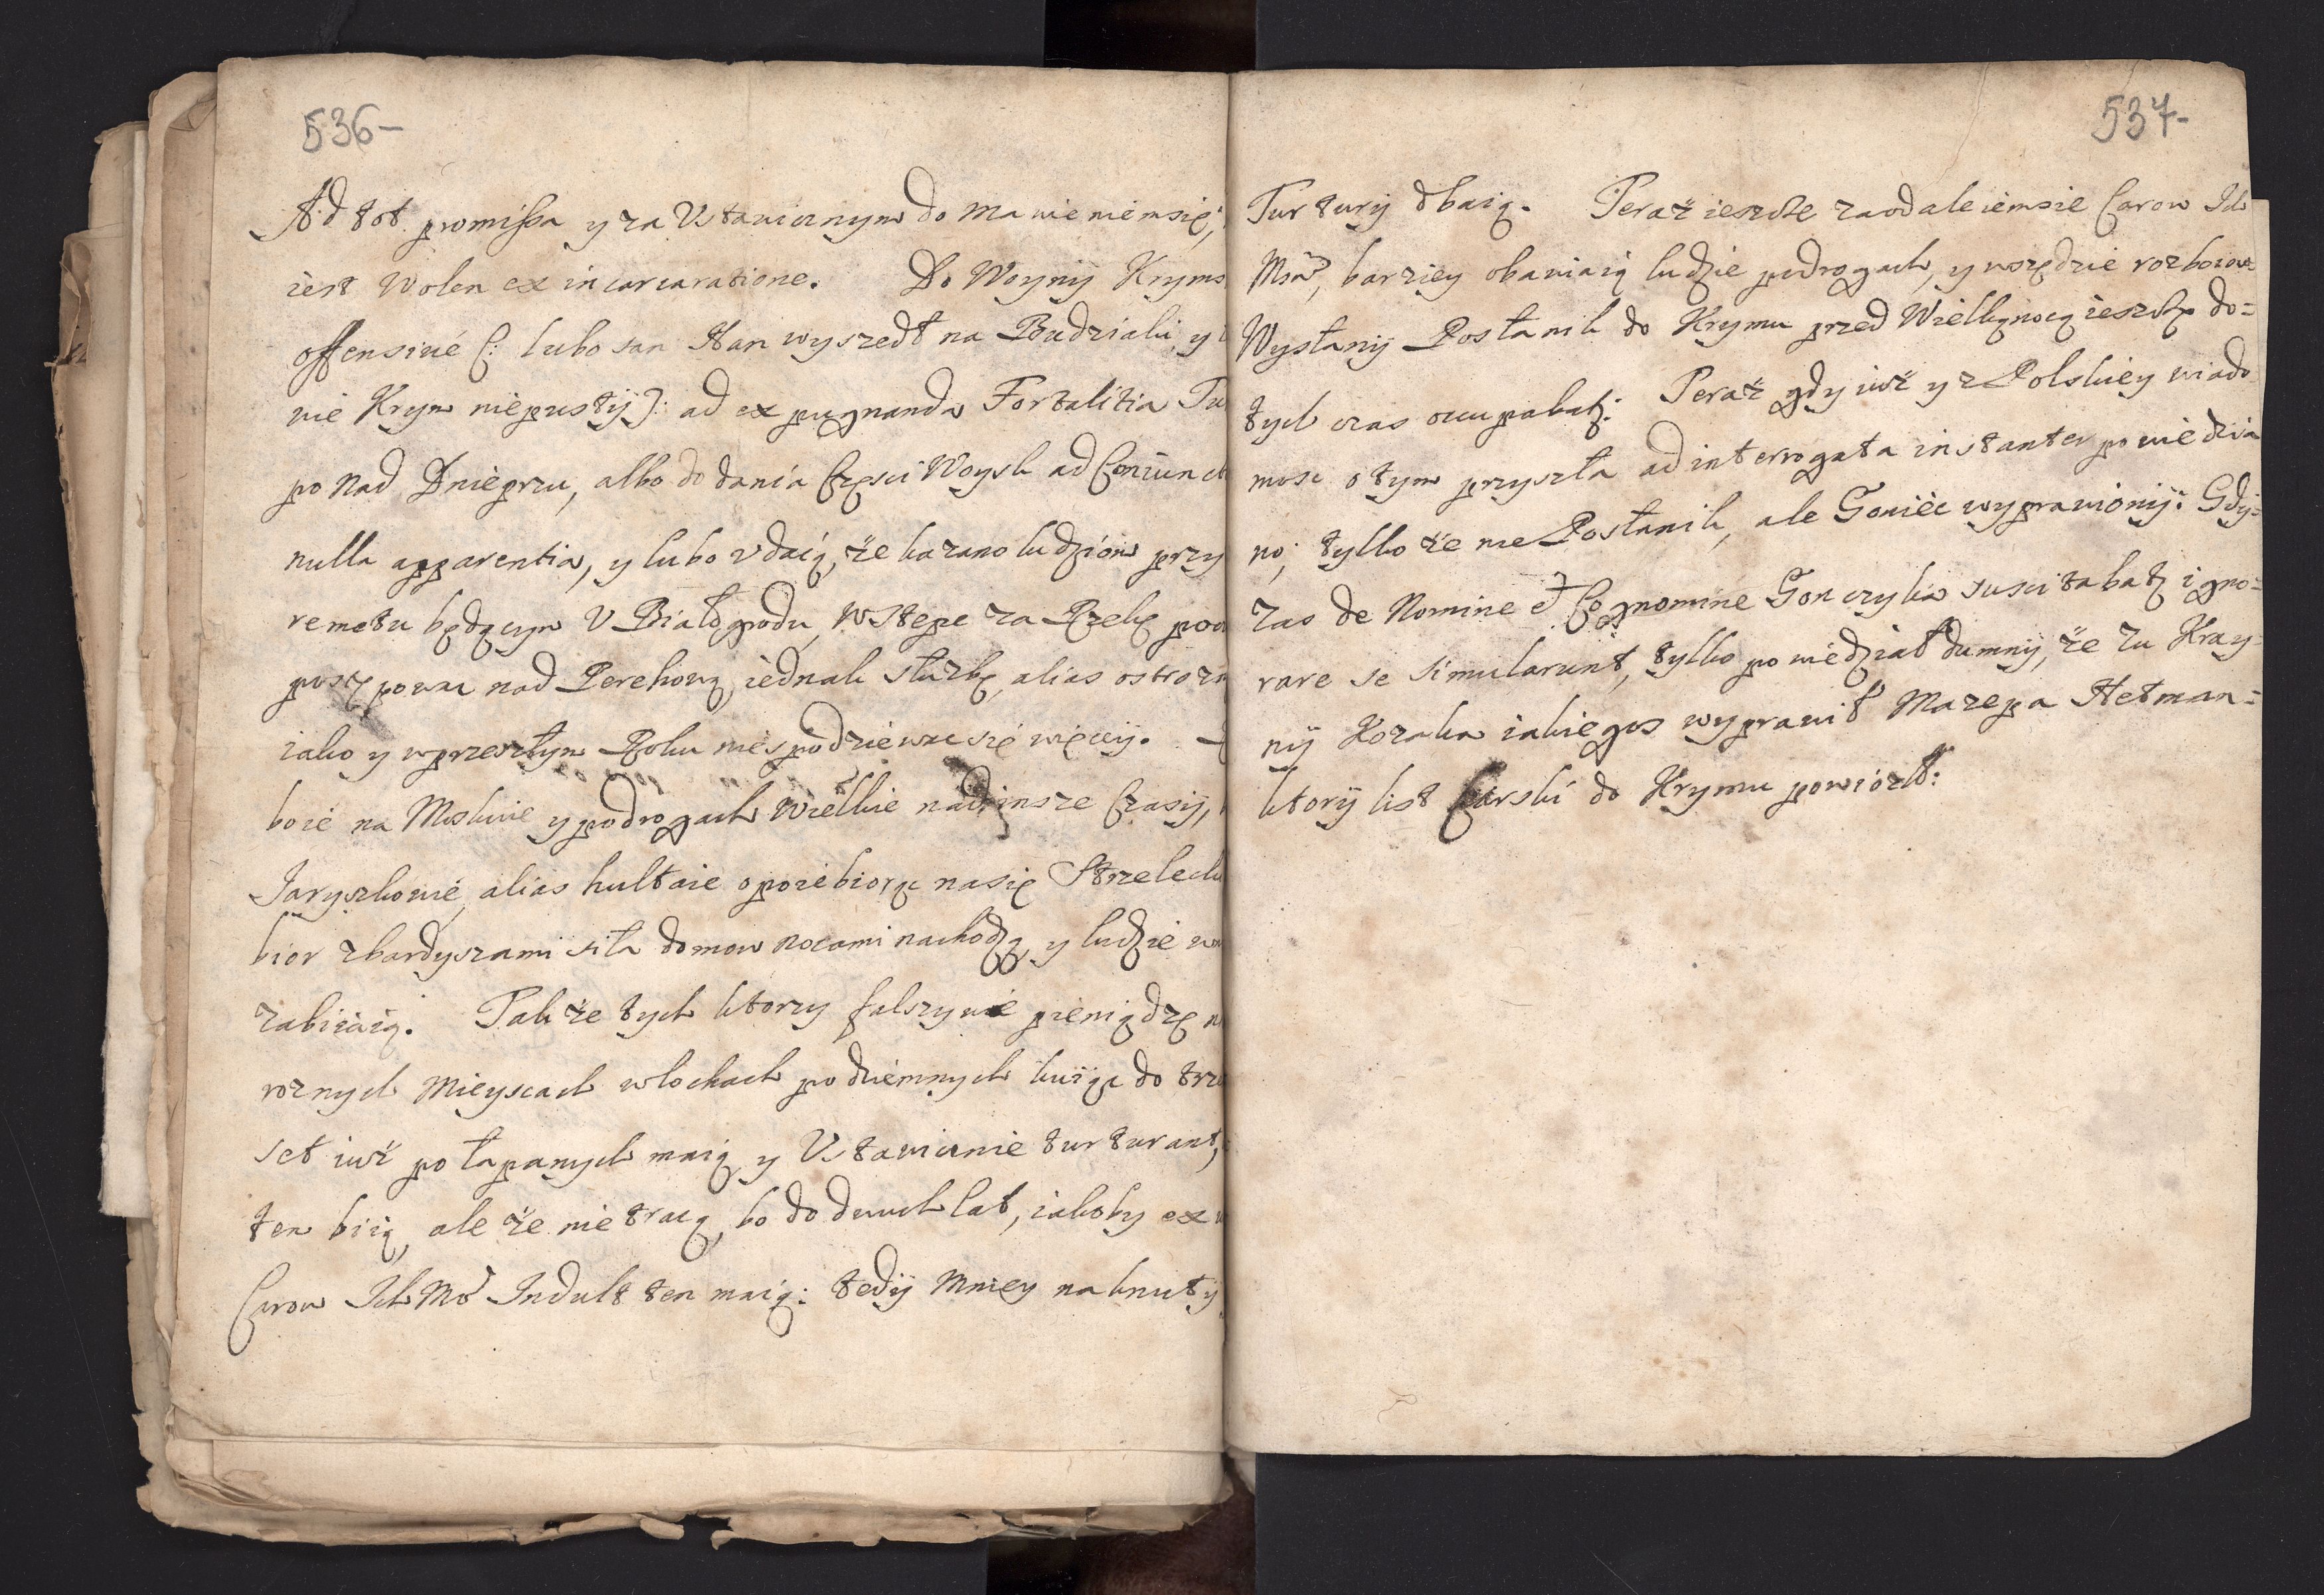 536-
Ad tot promissa y za Ustawicznym domawieniem się,
iest wolen ex incarcaratione. Do Woyny Kryms
offensivé (: lubo sam Han wyszedł na Budziaki, y
nie Krym niepusty :) ad expugnanda Fortalitia Tu
po nad Dnieprzu, albo do dania Częsci Woysk ad Coniunct
nulla apparentia, y lubo udaią, że kazano ludziom przy
remetu będącym U Białogrodu, w Stepe za Rzekę
posępowac nad Perekową, iednak służbę, alias ostrozn
iako y w przeszłym Roku niespodziewac się więcey.
boie na Moskwie y po drogach Wielkie nad insze Czasy,
Jaryszkowie, alias hultaie opoie biorąc na się Strzelecki
bior z bardyszami siła domow nocami nachodzą, y ludzie
zabiiaią. Także tych ktorzy falszywie pieniądze
roznych Mieyscach w lochach podziemnych kuiąc do trze
set iuż połapanych maią, y Ustawicznie turturant,
ten biią, ale że nie tracą, bo do dwuch lat, iakoby ex
Carow Ich Mć Indult ten maią: tedy Mniey na knuty
537-
Turtury dbaią. Teraż ieszcze za oddaleniemsie Carow Ich
Mśc, barziey obawiaią ludzie po drogach, y wszędzie rozboiow
Wysłany Posłanik do Krymu przed Wielkąnocą ieszcze do=
tych czas occupabat: Teraż gdy iuż y z Polskiey wiado
mosc o tym przyszła ad interrogata instanter powiedzia
no, tylko że nie Posłanik, ale Goniec wyprawiony: Gdy=
zas de Nomine et Cognomine Gonczyka suscitabat, igno=
rare se simularunt, tylko powiedział dumny, że zu Kray=
ny Kozaka iakiegos wyprawił Mazepa Hetman=
ktory list Carski do Krymu powiozł: